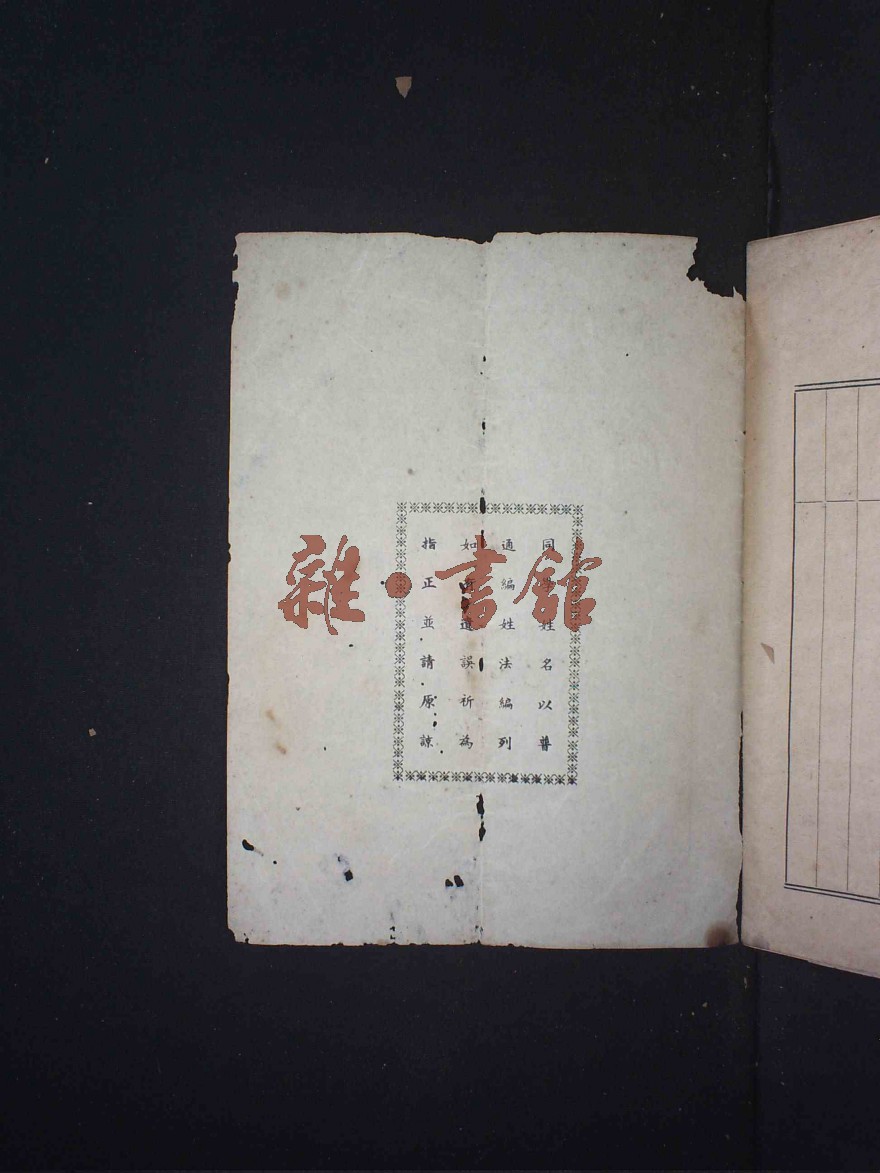 同學姓名以普
通編姓法編列
如有遺誤祈為
指正並請原諒
雜·書館